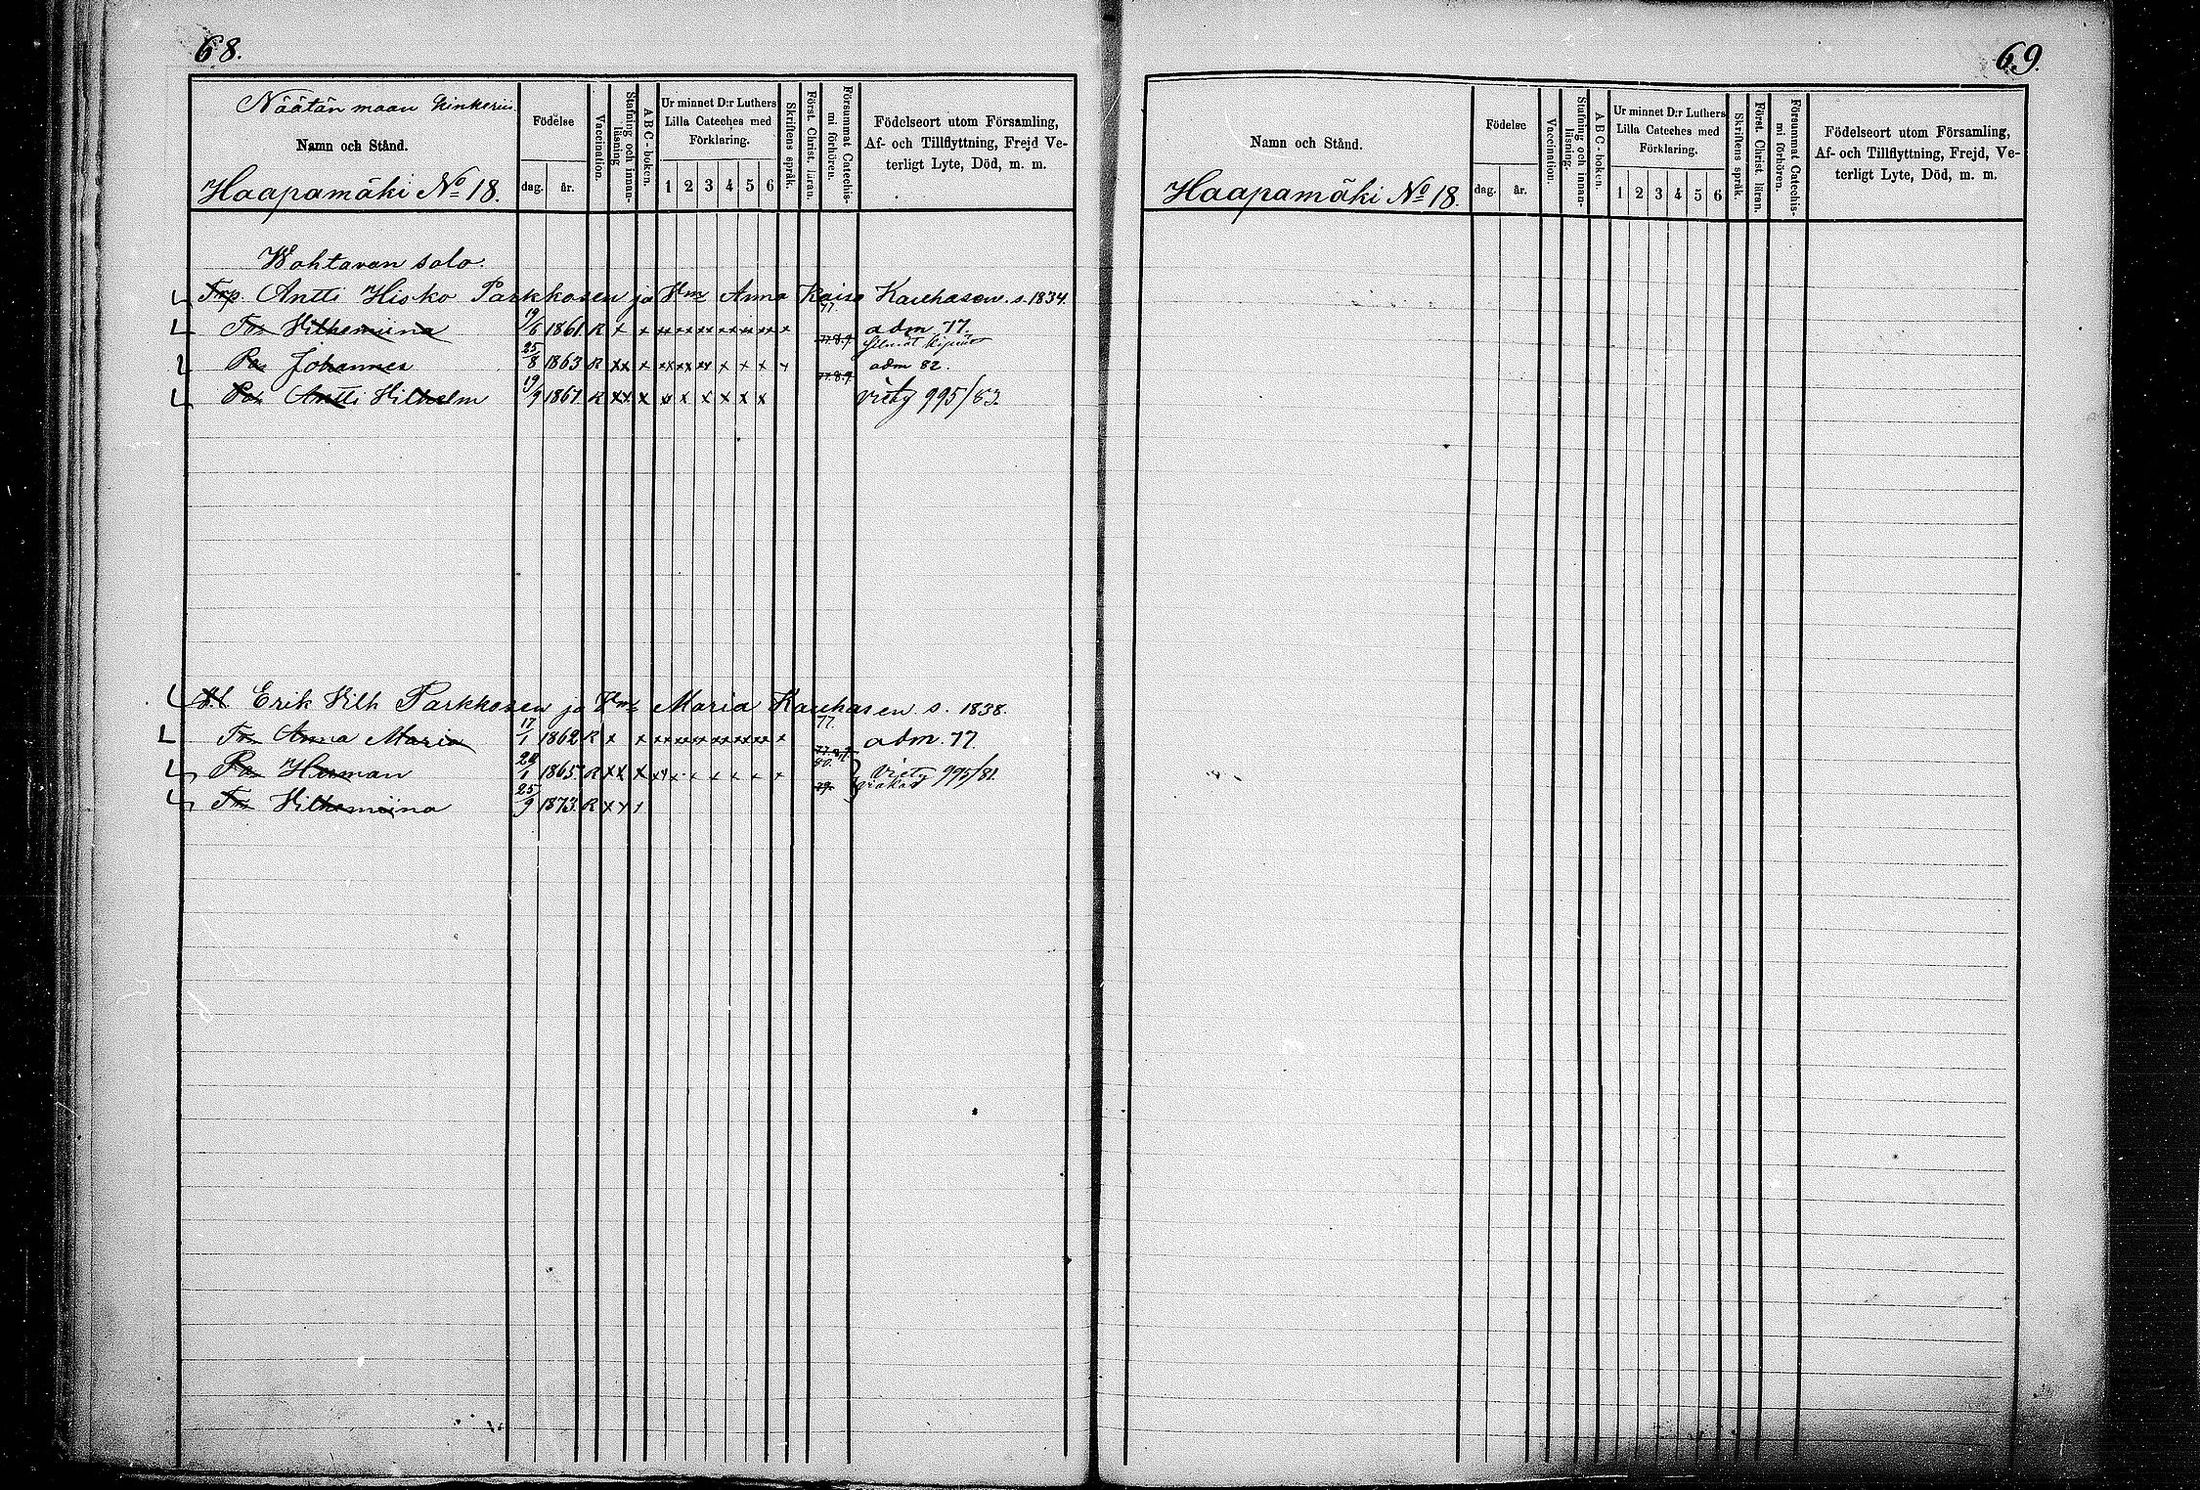 68.
Näätän maan Kinkerii.
Namn och Stånd.
Haapamäki No 18.
Födelse
dag. år.
Vaccination.
Stafning och innan-
läsning
ABC-boken.
Ur minnet D:r Luthers
Lilla Cateches med
Förklaring.
1 2 3 4 5 6
Skriftens språk.
Först. Christ. läran.
Försummat Catechis-
mi förhören.
Födelseort utom Församling,
Af- och Tillflyttning, Frejd Ve-
terligt Lyte, Död, m. m.
Wohtavan salo.
Trp. Antti Hisko Parkkosen ja Vm Anna Kaisa Kauhasen s. 1834.
77.
Tr Vilhemiina 19/6 1861. R x x xx xx xx xx xx xx x adm 77.
77.8.9.
Po Johannes 25/8 1863 R xx x xx xx xx x x x x adm 82.
77.8.9.
Po Antti Vilhelm 19/9 1867. R xx x x x x x x x viety 995/83.
Erik Vilh Parkkosen ja Vm Maria Kauhasen s. 1838.
77.
Tr Anna Maria 17/1 1862 R x x xx xx xx xx xx xx x adm. 77.
Po Herman 1865. R xx x x x x x x x viety 995/81.
79.
Tr Vilhemiina 25/9 1873. R x x x
69.
Namn och Stånd.
Haapamäki No 18.
Födelse
dag. år.
Vaccination.
Stafning och innan-
läsning.
ABC-boken.
Ur minnet D:r Luthers
Lilla Cateches med
Förklaring.
1 2 3 4 5 6
Skriftens språk.
Först. Christ. läran.
Försummat Catechis-
mi förhören.
Födelseort utom Församling,
Af- och Tillflyttning, Frejd, Ve-
terligt Lyte, Död, m. m.